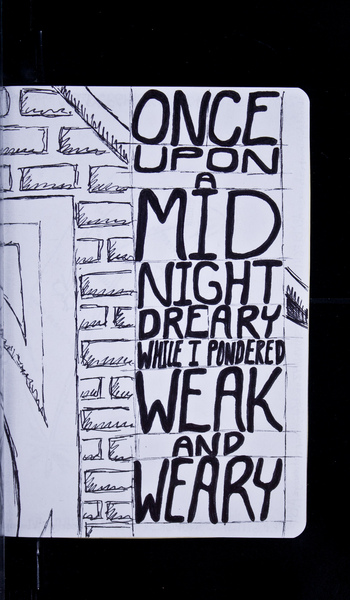 ONCE
UPON
A
MID
NIGHT
DREARY
WHILE I PONDERED
WEAK
AND
WEARY